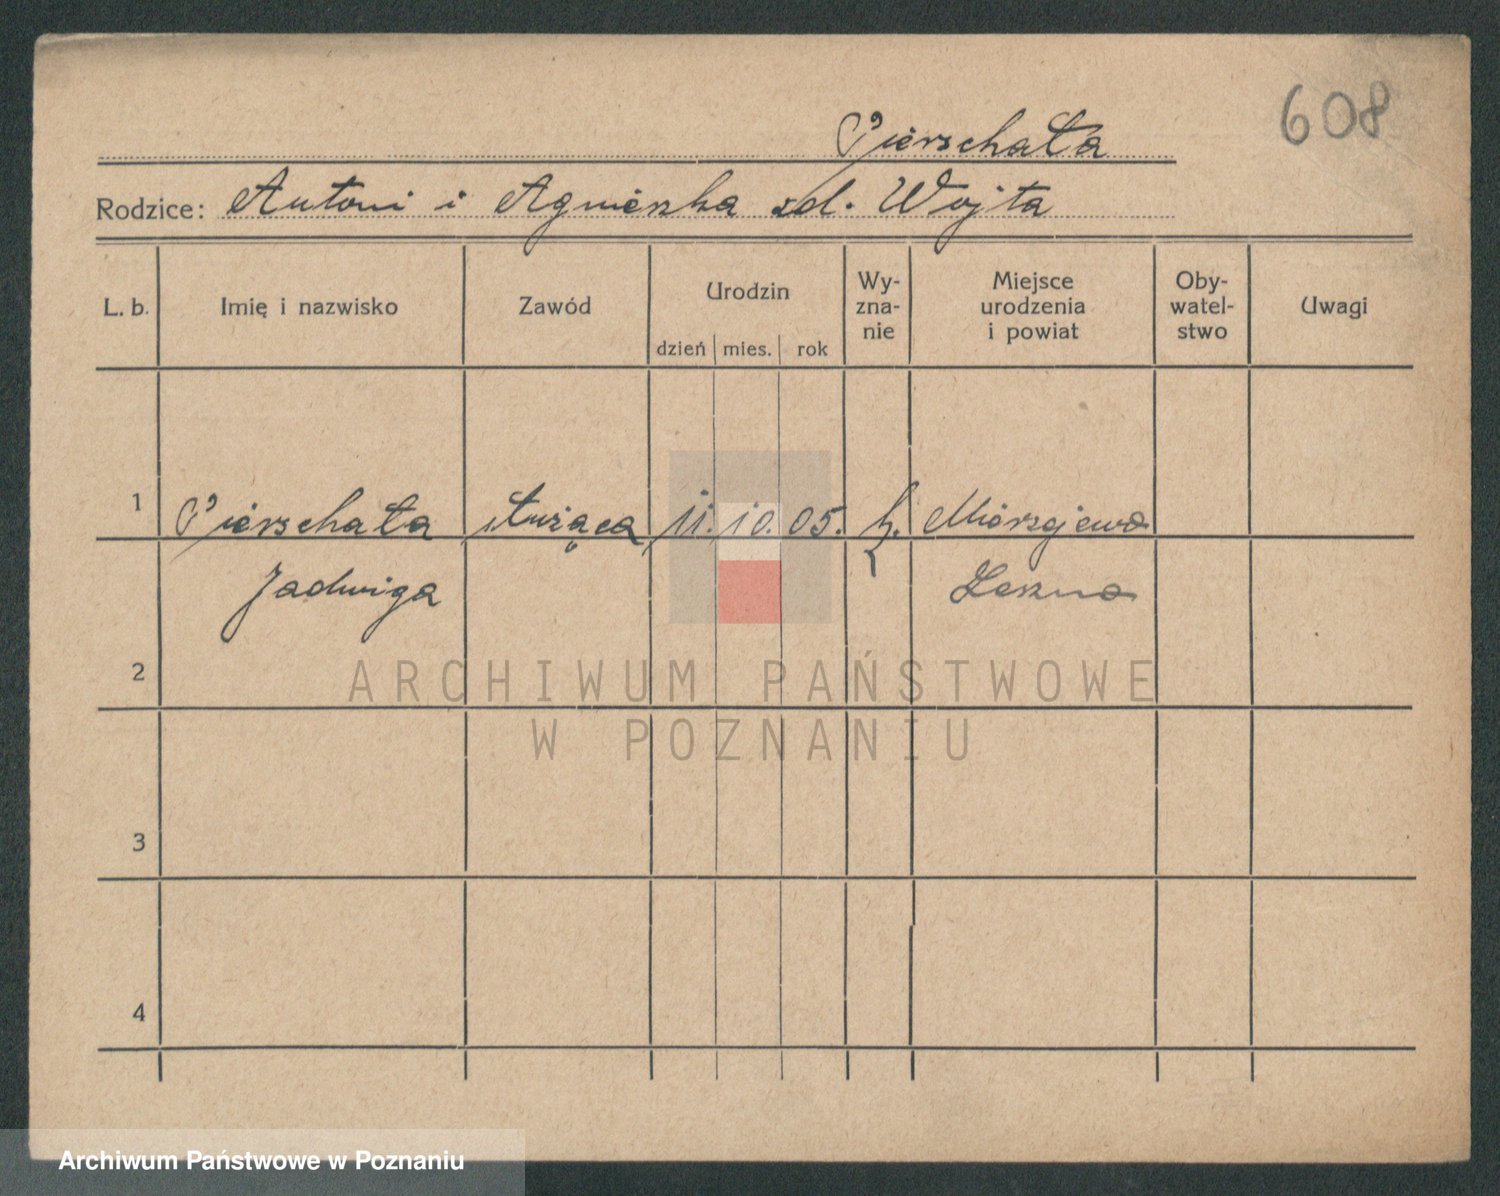 608
Pierschała
Rodzice: Antoni i Agnieszka zd. Wojta
L. b. Imię i nazwisko Zawód Urodzin dzień mies. rok Wy-zna-nie Miejsce urodzenia i powiat Oby-watel-stwo Uwagi
1 Pierschała służąca 11. 10. 05. k. Mórzejewo
Jadwiga Leszno
2
3
4
ARCHIWUM PAŃSTWOWE
W POZNANIU
Archiwum Państwowe w Poznaniu